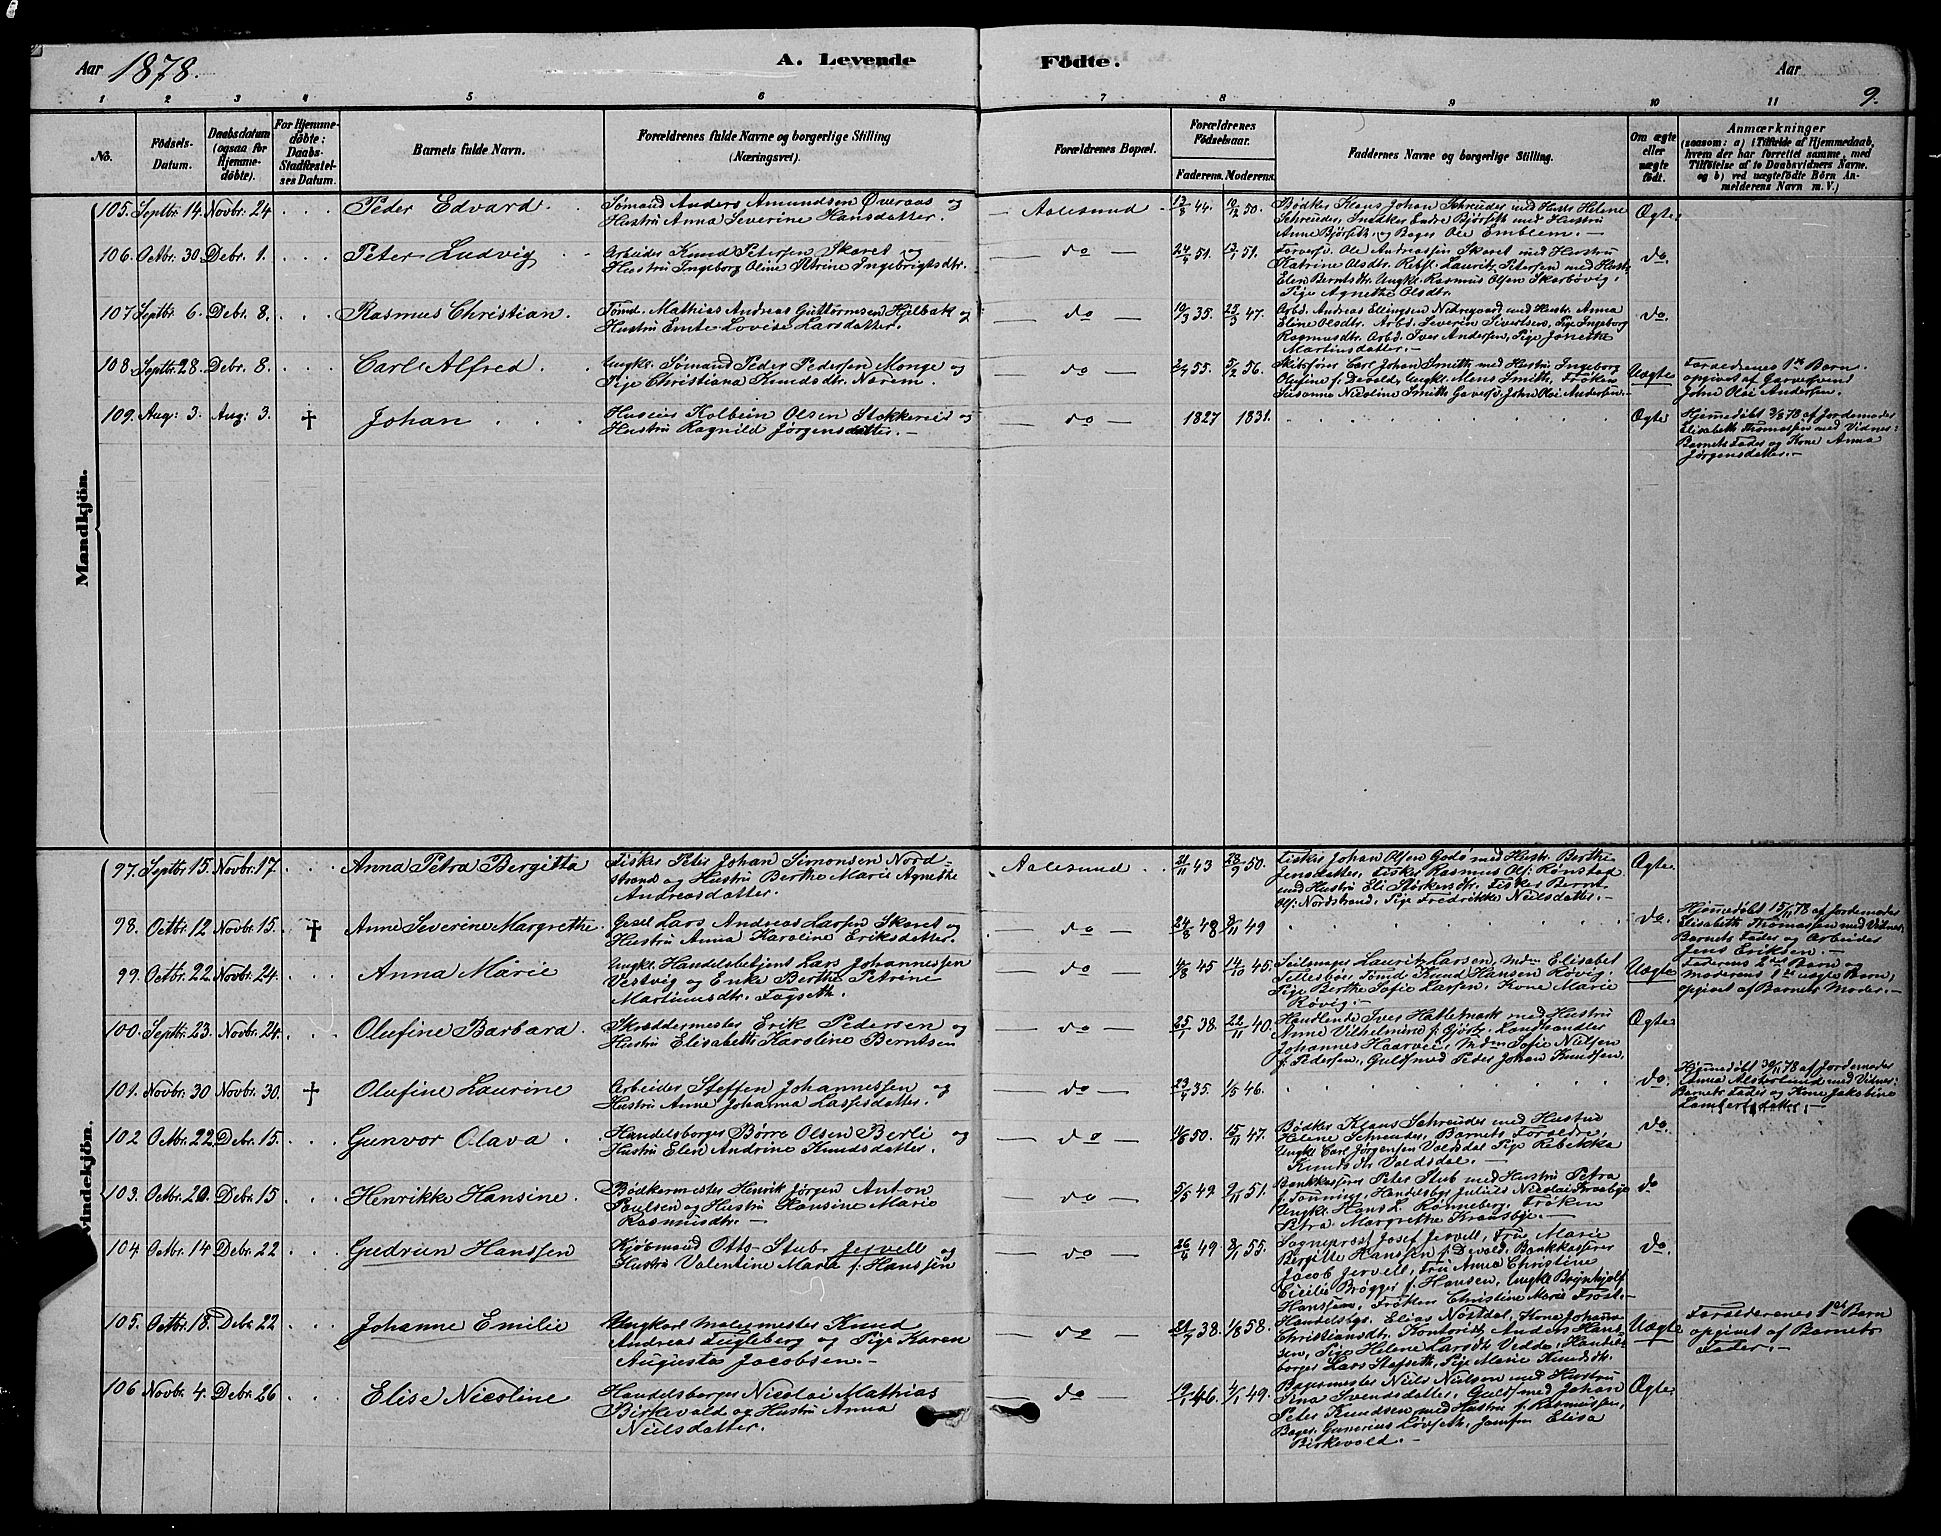 Aar 1878. A. Levende Födte. Aar
9.
1 2 3 4 5 6 7 8 9 10 11
No.
Födsels-
Datum.
Daabsdatum
(ogsaa for
Hjemme-
döbte).
For Hjemme-
döbte:
Daabs-
Stadfæstel-
ses Datum.
Barnets fulde Navn.
Forældrenes fulde Navne og borgerlige Stilling
(Næringsvei).
Forældrenes Bopæl.
Forældrenes
Födselsaar.
Faderens. Moderens.
Faddernes Navne og borgerlige Stilling.
Om ægte
eller
uægte
födt.
Anmærkninger
(saasom: a) i Tilfælde af Hjemmedaab,
hvem der har forrettet samme, med
Tilföielse af to Daabsvidners Navne.
og b) ved uægtefödte Börn An-
melderens Navn m. V.)
Mandkjön.
105. Septbr. 14. Novbr. 24 . . . Peder Edvard. Sömand Anders Amundsen Överaas og
Hustru Anna Severine Hansdatter.
— Aalesund — 44. 10/12 50.
Bödker Klaus Johan Schreuder med Hustr. Helene
Schreuder, Endre Björseth med Hustru
Anne Björseth, og Bager Ole Emblem. —
Ægte
106. Octbr. 30. Debr. 1. . . . Peter Ludvig Arbeider Knud Petersen Skaret og
Hustru Ingeborg Oline Petrine Ingebrigtsdtr.
— do — 51. 51.
Ole Andreassen Skaret med Hustru
Katrine Olsdtr. Rebsl. Lauritz Petersen med Hustr.
Elen Berntsdtr. Ungkl. Rasmus Olsen Skarbövig,
Pige Agnethe Olsdtr.
do.
107 Septbr. 6. Debr. 8. . . . Rasmus Christian. Tömd. Mathias Andreas Guttormsen Hjelbak og
Hustru Emte Lovise Larsdatter.
— do — 10/3 35. 23/3 47.
Arbd. Andreas Ellingsen Nedregaard med Hustr. Anna
Eline Olsdtr. Arbd. Severin Sivertsen, Pige Ingeborg
Rasmusdtr. Arbd. Iver Andersen, Pige Jonethe
Martinusdatter. —
do.
108. Septbr. 28. Debr. 8. . . . Carl Alfred. Ungkr. Sömand Peder Pedersen Monge og
Pige Christiana Knudsdtr. Norem.
— do — 55. 5/12 56.
Skibsförer Carl Johan Smith med Hustr. Ingeborg
Olufine f. Devold, Ungkl. Mons Smith, Fröken
Susanne Nicoline Smith John Roe Andersen. —
Uægte
Forældrenes 1ste Barn
opgivet af Garversvend
John Roe Andersen.
109. Aug: 3. Aug: 3. † Johan . . . Huseier Kolbein Olsen Stokkereit og
Hustru Ragnild Jörgensdatter. —
— do — 1827 1831.
Ægte
Hjemmedöbt 3/8 78 af Jordemoder
Elisabeth Thomassen med Vidner:
Barnets Fader og Kone Anna
Jörgensdatter. —
Kvindekjön.
97. Septbr. 15. Novbr. 17. . . Anna Petra Bergitta Fisker Peter Johan Simonsen Nord-
strand og Hustru Berthe Marie Agnethe
Andreasdatter.
Aalesund . 21/11 43 28/9 50.
Fisker Johan Olsen Godö med Hustr. Berthe
Jensdatter, Fisker Rasmus Ols. Rönstad
med Hustru Eli Störkersdtr. Fisker Bernt
Ols. Nordstrand, Pige Fredrikke Nielsdatter. —
Ægte
98. Octbr. 12 Novbr. 15. † Anne Severine Margrethe. Gesel Lars Andreas Larsen Skaret og
Hustru Anna Karoline Eriksdatter.
— do — 24/8 48 8/11 49
do.
Hjemmedöbt 15/11 78 af Jordemoder
Elisabeth Thomassen med Vidner
Barnets Fader og Arbeider
Jens Eriksen. —
99. Octbr. 22. Novbr. 24. . . Anna Marie Ungkl. Handelsbetjent Lars Johannessen
Vestvig og Enke Berthe Petrine
Martinusdtr. Fagseth.
— do — 4/8 45 14/10 45.
Seilmager Lauritz Larsen, Mdm Elisabet
Tömd. Knud Hansen Rövig,
Pige Berthe Sofie Larsen. Kone Marie
Rövig. —
Uægte
Faderens 2det Barn og
Moderens 1ste uægte Barn,
opgivet af Barnets Moder. —
100. Septbr. 23. Novbr. 24. . . Olufine Barbara. Skræddermester Erik Pedersen og
Hustru Elisabeth Karoline Berntsen
— do — 25/7 38. 22/11 40.
Handlende Iver Halletmark med Hustru
Anne Vilhelmine f. Gjörtz. Landhandler
Johannes Haarvei, Mdm Sofie Nielsen
f. Pedersen, Guldsmed Peder Johan Knudsen.
Ægte
101. Novbr. 30 Novbr. 30. † Olufine Laurine Arbeider Steffen Johannessen og
Hustru Anne Johanna Lassesdatter.
— do — 35. 1/5 46.
do.
Hjemmedöbt 30/11 78 af Jordemoder
Anna Alsterlund med Vidner:
Barnets Fader og Kone Jakobine
Lambertsdatter. —
102 Octbr. 22. Debr. 15. . . Gunvor Olava . Handelsborger Börre Olsen Berli og
Hustru Elen Andrine Knudsdatter.
— do — 50. 15/11 47.
Bödker Klaus Schreuder med Hustru
Helene Schreuder, Barnets Forældre,
Ungkl. Carl Jörgensen Valdsdal Pige Rebekka
Knudsdtr. Valdsdal. —
do.
103. Octbr. 20. Debr. 15 . . Henrikke Hansine. Bödkermester Henrik Jörgen Anton
Paulsen og Hustru Hansine Marie
Rasmusdtr. —
do — 5/5 49. 9/11 51.
Bankkasserer Peter Stub med Hustru Petra
f. Tönning, Handelsbgr. Julius Nicolai Kraabye
Ungkl. Hans L. Rönneberg, Fröken
Petra Margrethe Kraabye. —
do
104. Octbr. 14 Debr. 22 . . Gudrun Hanssen Kjöbmand Otto Stub Jervell og
Hustru Valentine Marie f. Hanssen
— do — 26/4 49. 8/1 55.
Sogneprest Josef Jervell, Frue Marie
Bergitte Hanssen f. Devold, Bankkasserer
Jacob Jervell, Fru Anna Christine
Cicilie Brögger f. Hansen, Ungkl. Brynhjolf
Hanssen, Fröken Christine Marie Frost. —
do.
105. Octbr. 18. Debr. 22 . . Johanne Emilie Ungkarl Malermester Knud
Andreas Fugleberg og Pige Karen
Augusta Jacobsen. —
— do — 38. 1/8 58.
Handelsbgr. Elias Nöstdal, Kone Johanne
Christiansdtr. Kontorist Anders Han-
sen, Pige Helene Larsdtr. Vedde, Handels-
borger Lars Stafseth, Pige Marie Knudsdtr.
Uægte
Forældrenes 1ste Barn
opgivet af Barnets
Fader. —
106 Novbr. 4. Debr. 26 . . Elise Nicoline Handelsborger Nicolai Mathias
Birkevold og Hustru Anna
Nielsdatter.
— do — 46. 49.
Bagermester Niels Nielsen med Hustru
Sina Svendsdatter, Guldsmed Johan
Peter Knudsen med Hustru f. Rasmussen,
Bager Gunerius Lövseth, Jomfru Elisa
Birkevold. —
Ægte